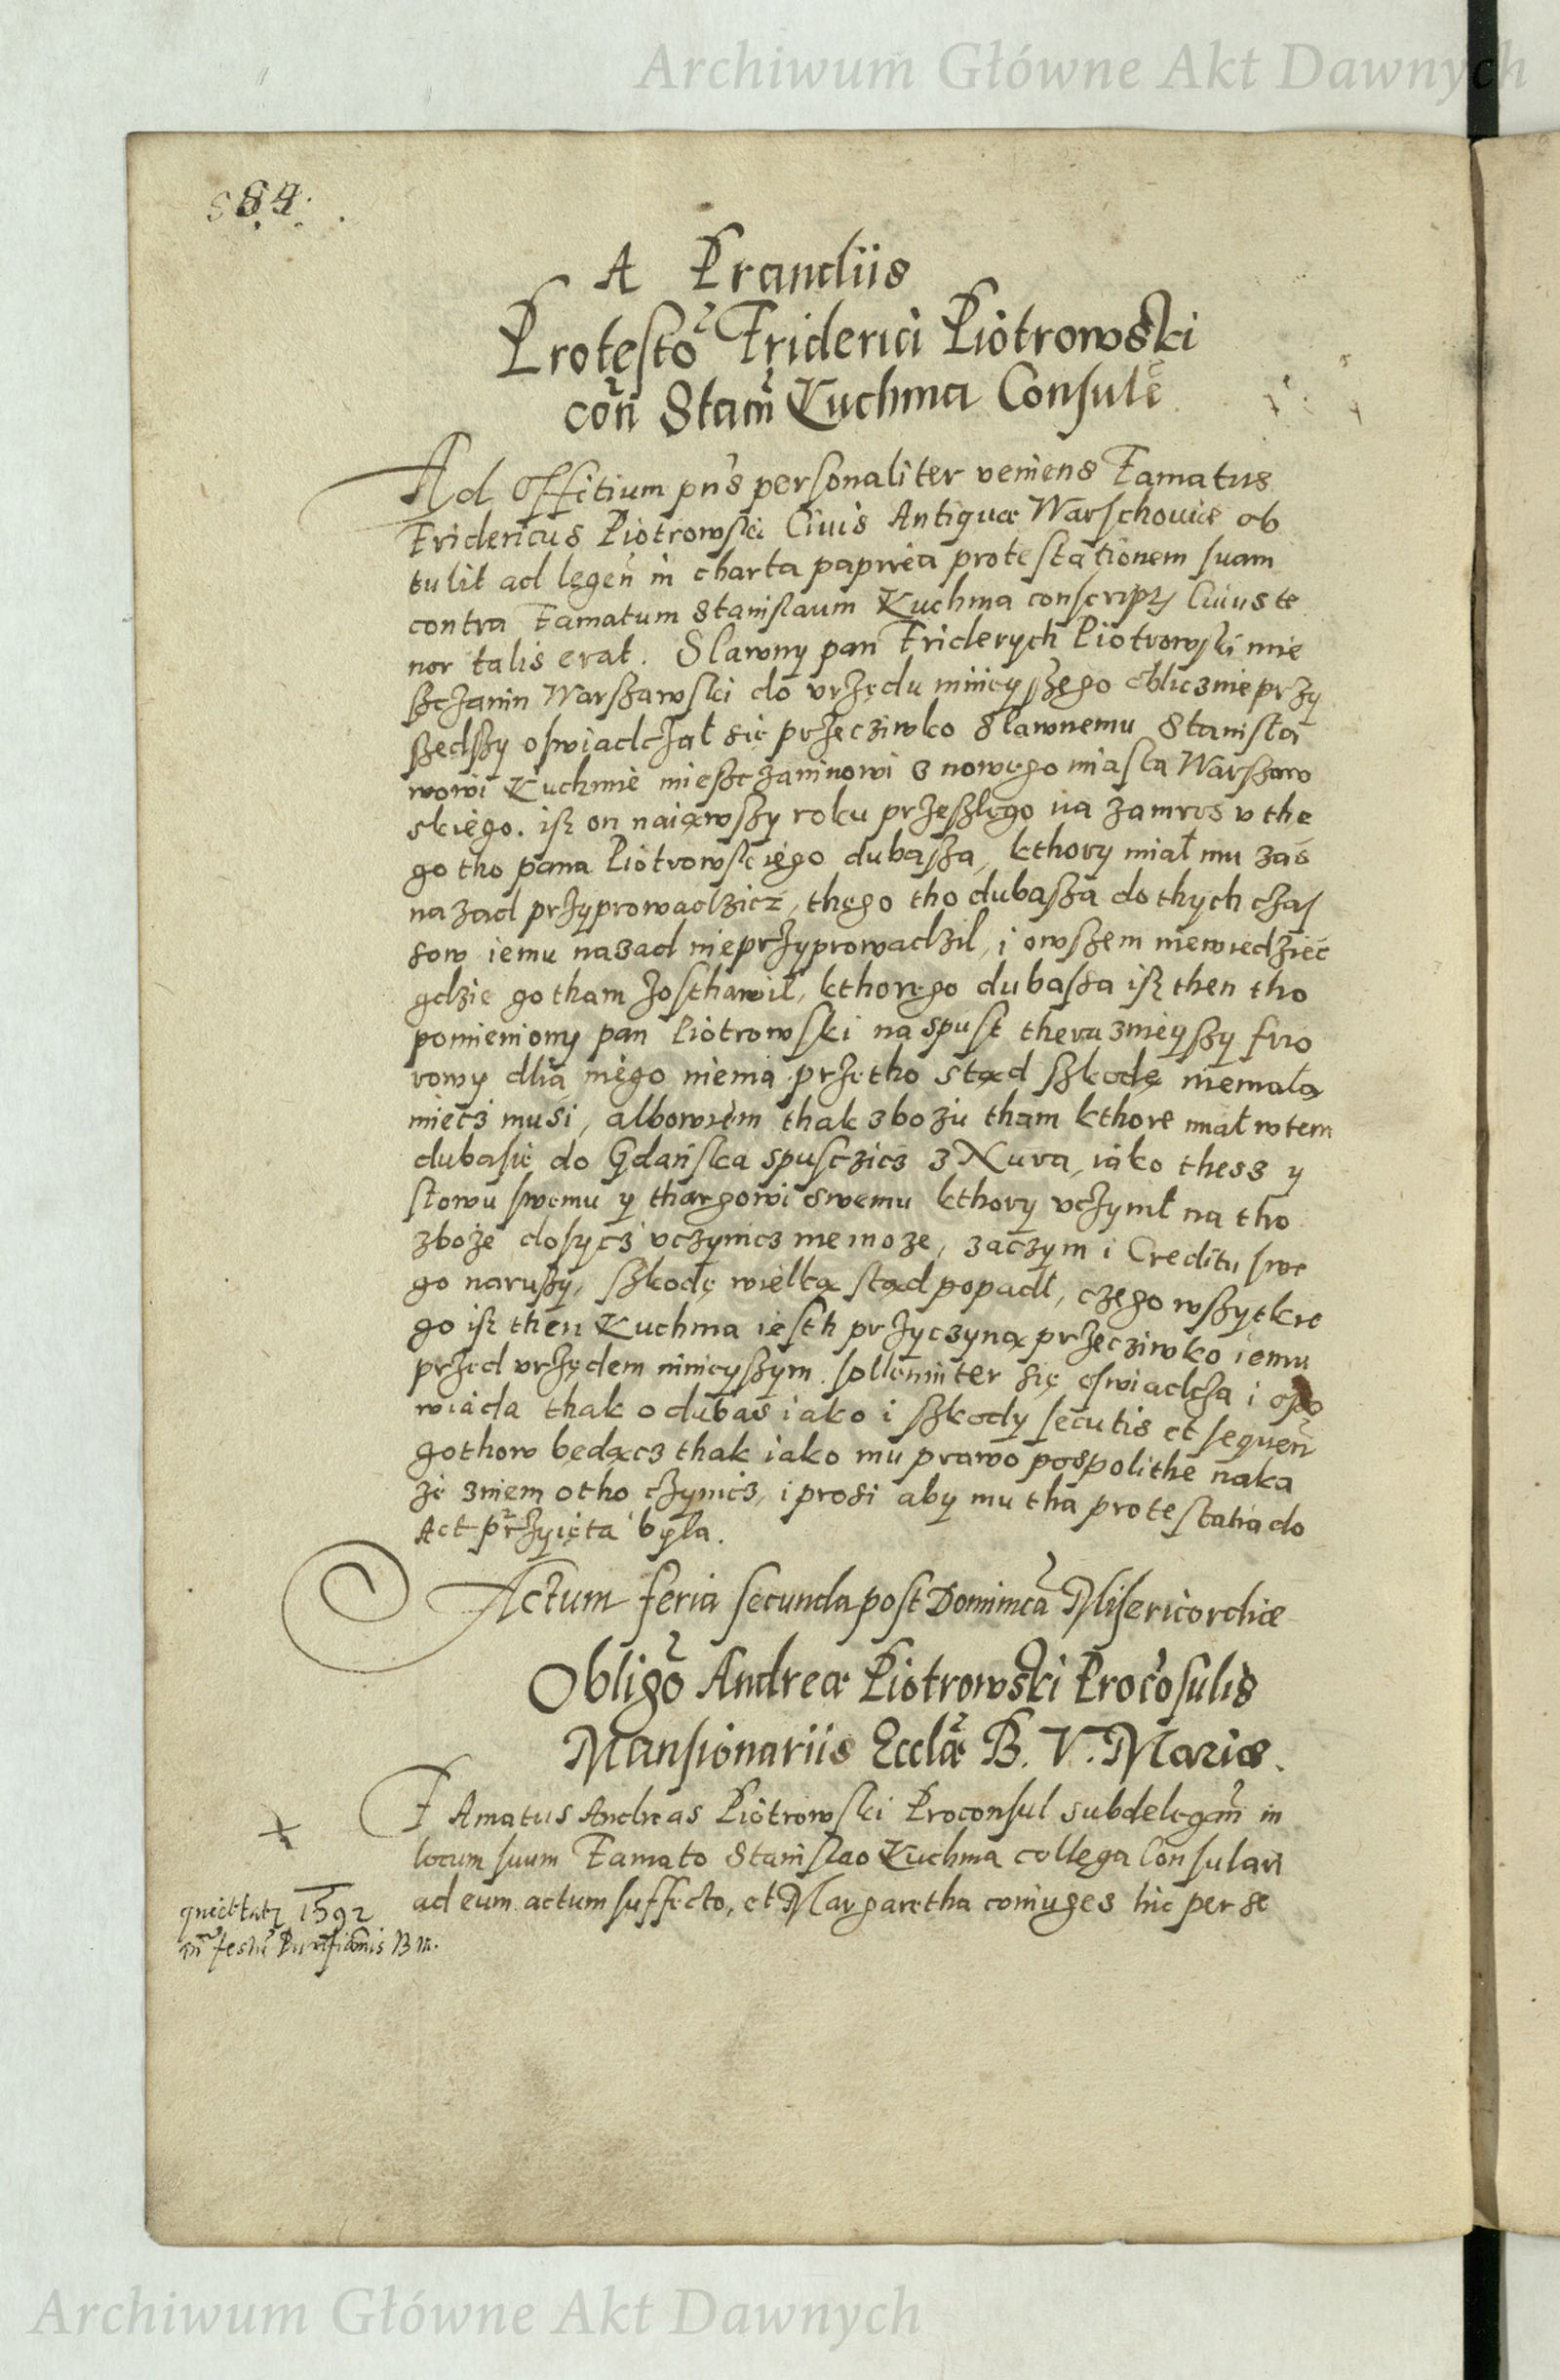 Archiwum Główne Akt Dawnych
584.
A Prandiis
Protesto Friderici Piotrowski
con Stani Kuchma Consule
Ad Officium pns personaliter veniens Famatus
Fridericus Piotrowski Ciuis Antiquæ Warschouiæ ob
tulit ad legen in charta papirea protestationem suam
contra Famatum Stanislaum Kuchma conscript Cuius te
nor talis erat. Slawny pan Friderych Piotrowski mie
sczanin Warszawski do vrzędu ninieyszego oblicznie przy
szedszy oswiadczał się przecziwko Sławnemu Stanisła
wowi Kuchmie miesczaninowi z nowego miasta Warszaw
skiego. isz on naiąwszy roku przeszłego na zamros v the
go tho pana Piotrowskiego dubasza, kthory miał mu zas
nazad przyprowadzicz, thego tho dubasza do thych czas
sow iemu nazad nieprzyprowadzil, i owszem niewiedziec
gdzie go tham zosthawil, kthorego dubassa isz then tho
pomieniony pan Piotrowski na spust theraznieyszy frio
rowy dlia niego niema przetho stąd szkodę niemałą
miecz musi, albowiem thak zbozu tham kthore miał wtem
dubasie do Gdańska spusczicz z Nura, iako thesz y
słowu swemu y thargowi swemu kthory vczynił na tho
zboże dosycz vczynicz niemoze, zaczym i Creditu swe
go naruszy, szkodę wielką stąd popadł, czego wszytkie
go isz then Kuchma iesth przyczyną przecziwko iemu
przed vrzędem ninieyszym solleniter się oswiadcza i opo
wiada thak o dubas iako i szkody secutis et sequen
gothow będącz thak iako mu prawo pospolithe naka
że zniem otho czynicz, i prosi aby mu tha protestatia do
Act przyięta była.
Actum feria secunda post Dominica Misericordiæ
Obligo Andreæ Piotrowski Procosulis
Mansionariis Ecclæ B. V. Mariæ.
FAmatus Andreas Piotrowski Proconsul subdelegam in
locum suum Famato Stanislao Kuchma collega Consulari
ad eum actum suffecto, et Margaretha coniuges hic per se
quiettat 1592
festu Purifianis B M.
Archiwum Główne Akt Dawnych